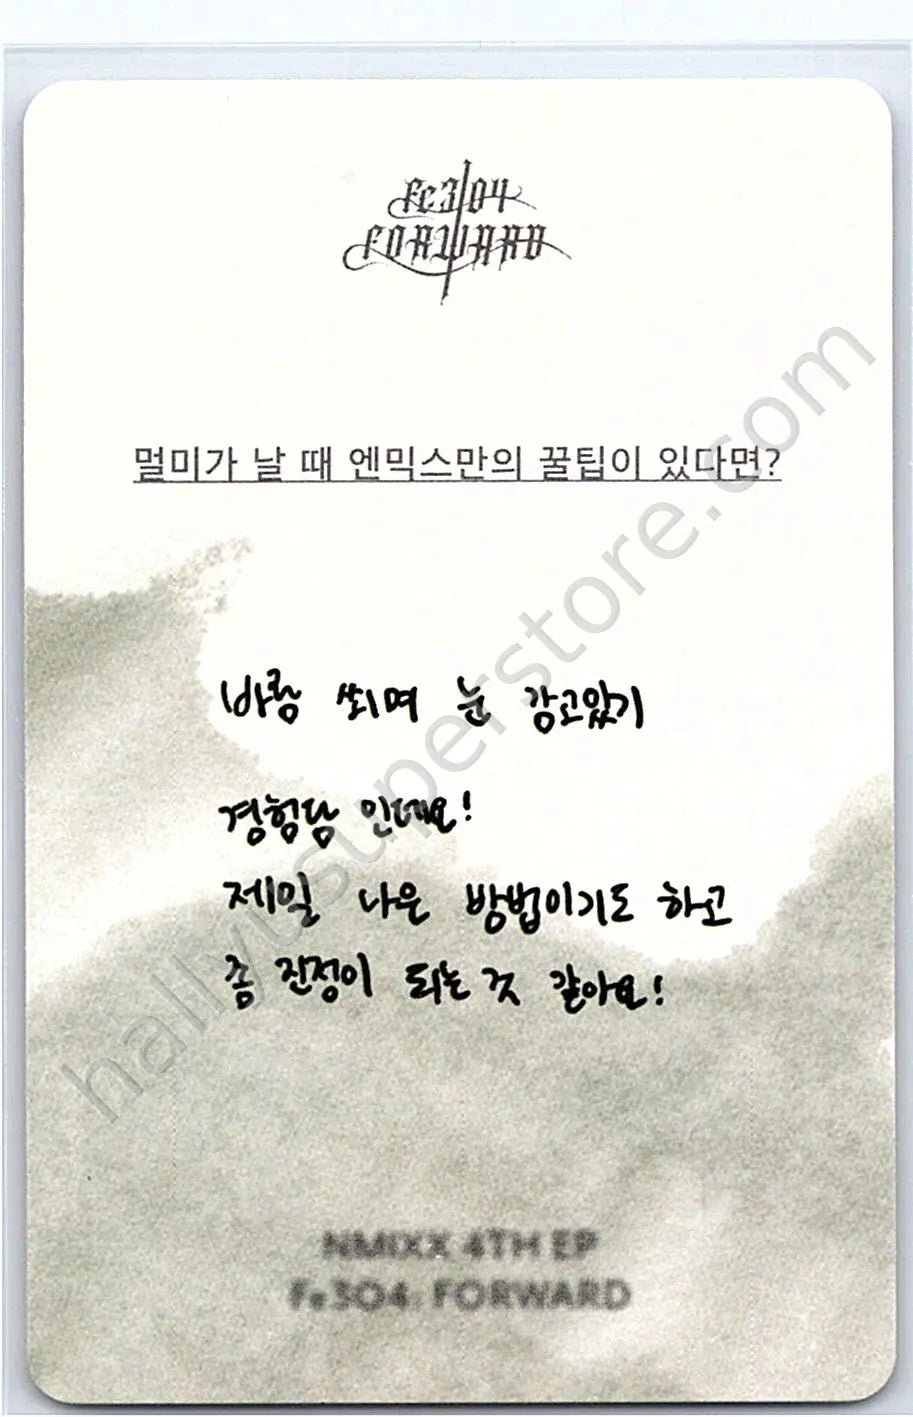 Fe3O4
FORWARD
멀미가 날 때 엔믹스만의 꿀팁이 있다면?
바람 쐬며 눈 감고있기
경험담 인데요!
제일 나은 방법이기도 하고
좀 진정이 되는 것 같아요!
hallyusuperstore.com
NMIXX 4TH EP
Fe3O4: FORWARD